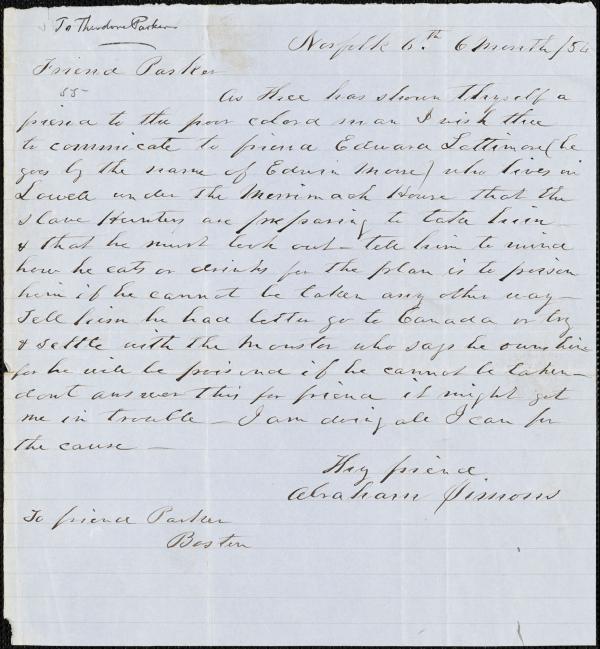 To Theodore Parker
Norfolk 6th 6 Month /54
Friend Parker
55-
As thee has shown thyself a
friend to the poor colord man I wish thee
to commuicate to friend Edward Lattimore (he
goes by the name of Edwin Morse) who lives in
Lowell under the Merrimack House that the
slave Hunters are prepairing to take him
& that he must look out - tell him to mind
how he eats or drinks for the plan is to poison
him if he cannot be taken any other way -
Tell him he had better go to Canada or try
& settle with the Monster who says he owns him
for he will be poisond if he cannot be taken -
dont answer this for friend it might get
me in trouble - I am doing all I can for
the cause -
Thy friend
Abraham Simons
To friend Parker
Boston